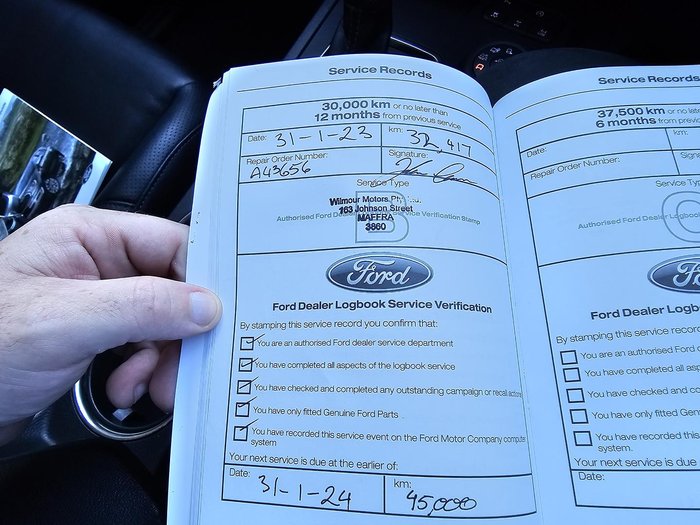 Service Records
30,000 km or no later than
12 months from previous service
Date: 31-1-23 km: 32,417
Repair Order Number: Signature:
A43656
Service Type
Wilmour Motors Pty
163 Johnson Street
Authorised Ford Dealer Service Verification Stamp
MAFFRA
3860
Ford
Ford Dealer Logbook Service Verification
By stamping this service record you confirm that:
You are an authorised Ford dealer service department
You have completed all aspects of the logbook service
You have checked and completed any outstanding campaign or recall actions
You have only fitted Genuine Ford Parts
You have recorded this service event on the Ford Motor Company computer
system
Your next service is due at the earlier of:
Date: km:
31-1-24 45,000
Service Records
37,500 km or no
6 months from
Date: km:
Repair Order Number: Signature:
Service
C
Authorised Ford Dealer
Ford
Ford Dealer
By stamping this service record
You are an authorised Ford
You have completed all
You have checked and
You have only fitted
You have recorded this
system.
Your next service is due
Date: